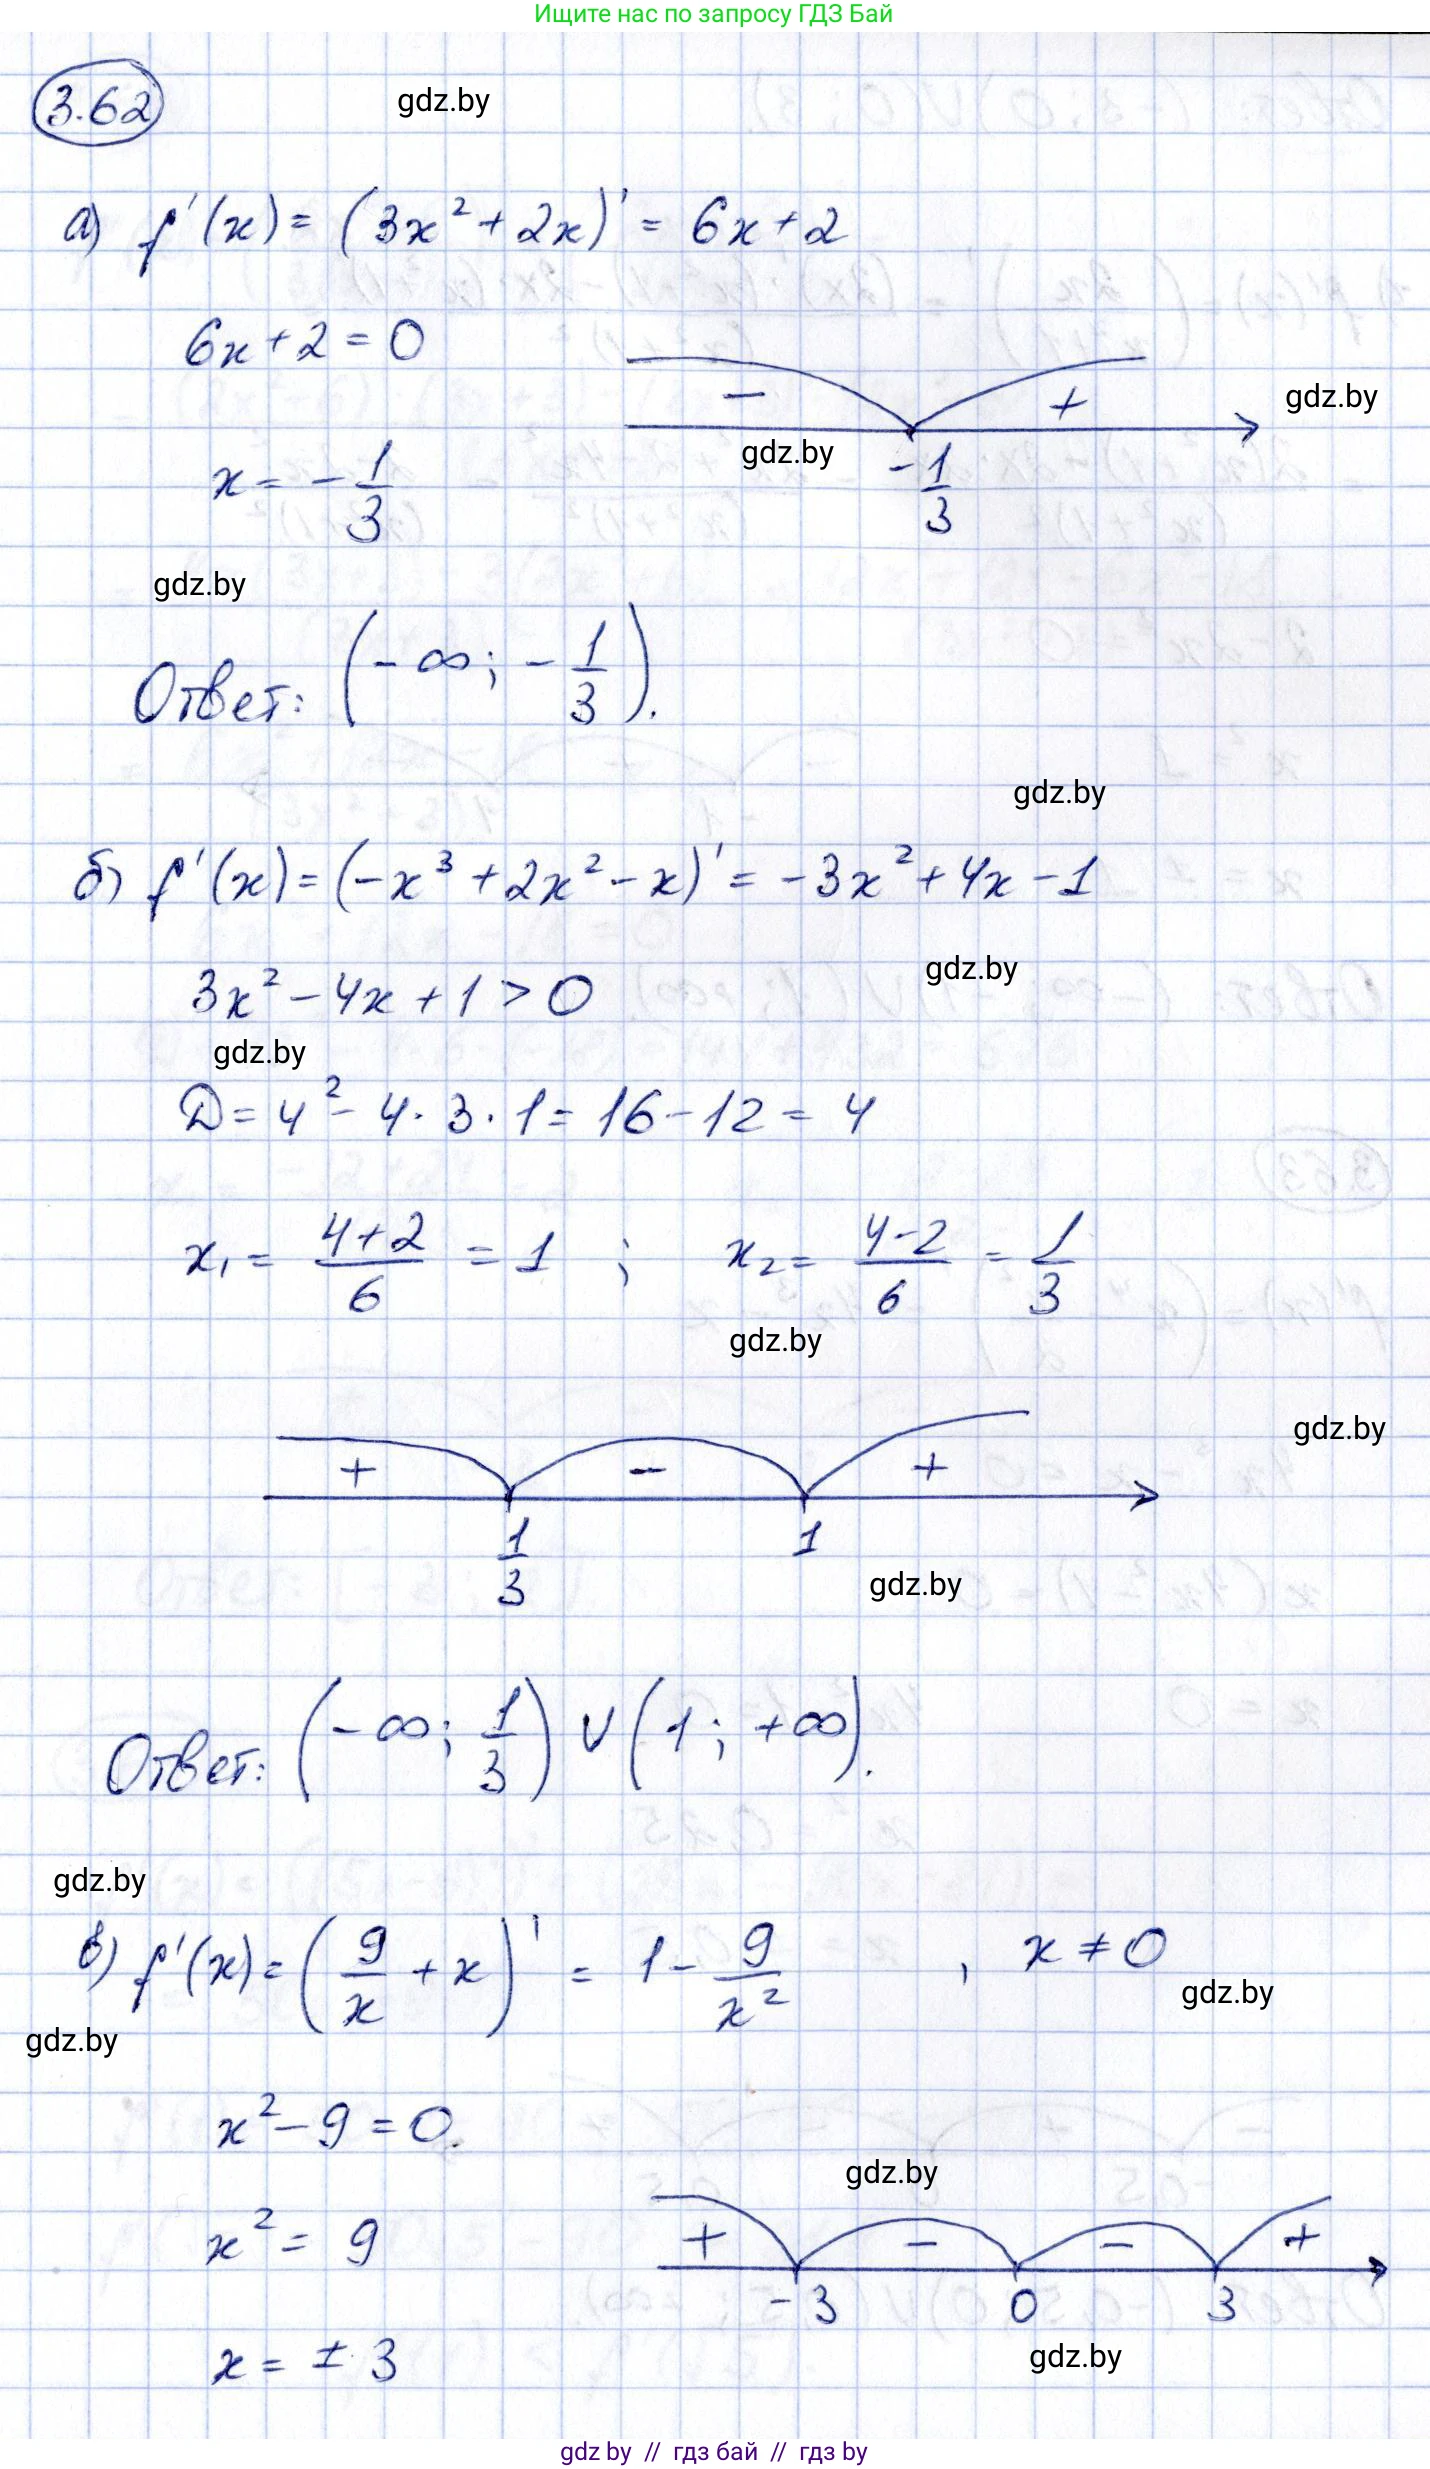 Ищите нас по запросу ГДЗ Бай
3.62
gdz.by
а) f'(x) = (3x² + 2x)' = 6x + 2
6x + 2 = 0
- +
gdz.by
gdz.by
x = - 1/3
- 1/3
gdz.by
Ответ: (-∞; - 1/3).
gdz.by
б) f'(x) = (-x³ + 2x² - x)' = -3x² + 4x - 1
gdz.by
3x² - 4x + 1 > 0
gdz.by
D = 4² - 4 · 3 · 1 = 16 - 12 = 4
x₁ = (4+2)/6 = 1 ; x₂ = (4-2)/6 = 1/3
gdz.by
gdz.by
+ - +
1/3 1
gdz.by
Ответ: (-∞; 1/3) ∪ (1; +∞).
gdz.by
в) f'(x) = (9/x + x)' = 1 - 9/x² , x ≠ 0
gdz.by
gdz.by
x² - 9 = 0.
gdz.by
x² = 9
+ - - +
-3 0 3
gdz.by
x = ± 3
gdz by // гдз бай // гдз by